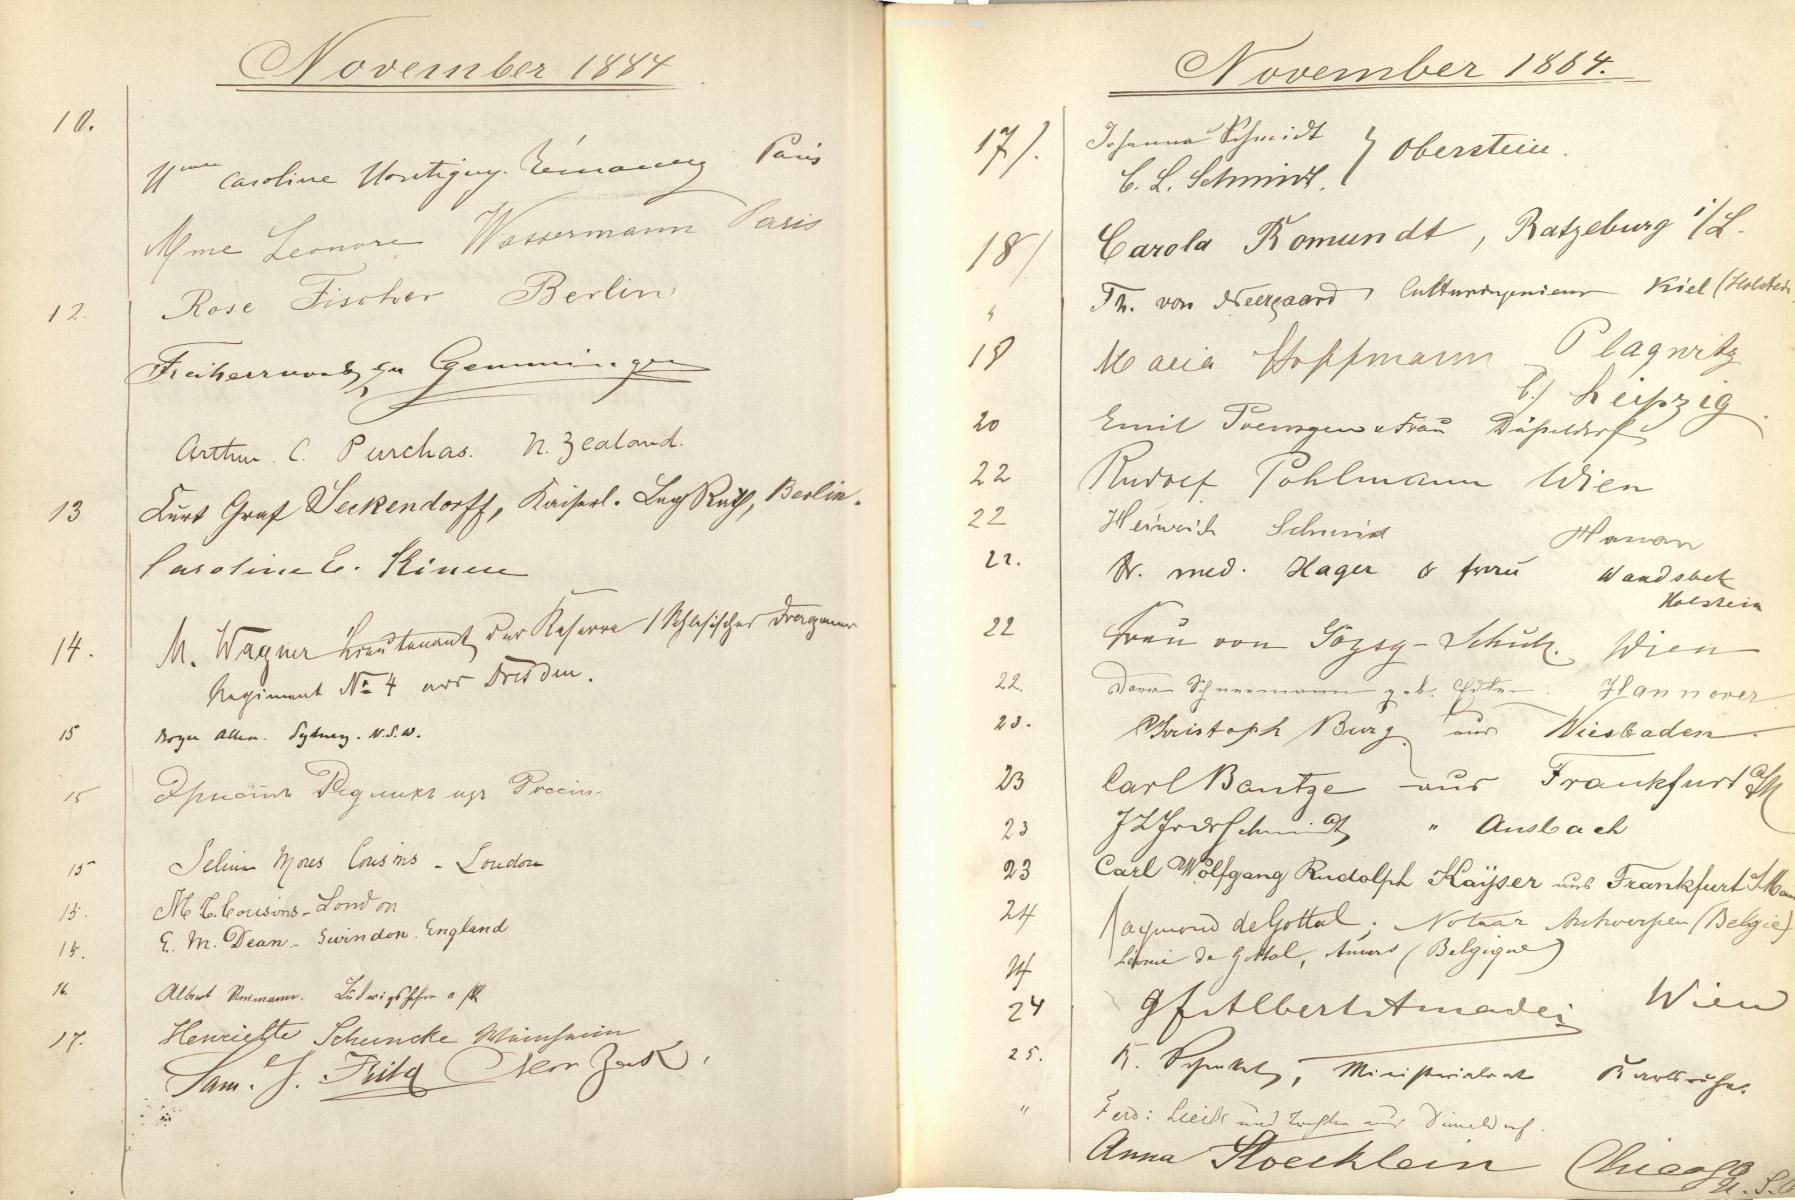 November 1884
10.
Mme Caroline Montigny-Rémaury Paris
Mme Leonore Wassermann Paris
Rose Fischer Berlin
12.
Freiherr von zu Gemmingen
Arthur C. Purchas. N. Zealand.
13 Kurt Graf Seckendorff, Kaiserl. Leg Rath, Berlin.
Caroline C.
14. M. Wagner Lieutenant der Reserve 1 Schlesischer Dragoner
Regiment No 4 aus Dresden.
15 Roger Allen. Sydney. N.S.W.
15
15 Selina Cousins - London
15. M. Cousins - London
15. E. M. Dean - Swindon. England
16. Albert
17. Henriette Schuncke Weinheim
Sam. J. New York.
November 1884.
17/. Johanna Schmidt
C. L. Schmidt. } Oberstein.
18/ Carola Romundt, Ratzeburg i/L.
" Th. von Neergaard, Culturingenieur Kiel (Holstein)
19 Maria Hoffmann Plagwitz
b./ Leipzig.
20 Emil Poensgen u Frau Düsseldorf
22 Rudolf Pohlmann Wien
22 Heinrich Schmid Hanau
22. Dr. med. Hager & Frau Wandsbek
Holstein
22 Frau von Wien
22. geb. Hannover
23. Christoph Burg aus Wiesbaden.
23 Carl Bantze aus Frankfurt a/M
23 Schmidt " Ansbach
23 Carl Wolfgang Rudolph Kayser aus Frankfurt a/Main
24 Raymond de Gottal, Notaar Antwerpen (Belgie)
24 Léonie de Gottal, Anvers (Belgique)
24 Gf Albert Amadei Wien
25. K. Schenkel, Ministerialrat Karlsruhe.
" Ferd: und Tochter aus Düsseldorf.
Anna Stoecklein Chicago